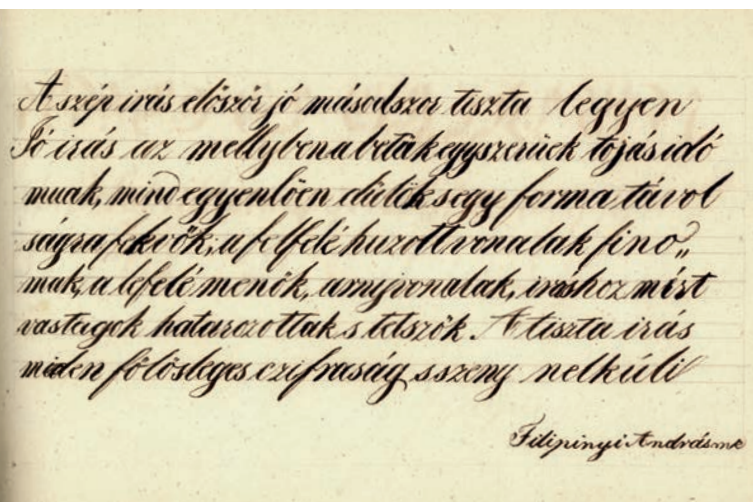 A szép irás előszőr jó másodszor tiszta legyen
Jó irás az mellyben a betűk egyszerüek tojásidó
muak, mind egyenlően dültek s egy forma távol
ságra fekvők; a felfelé huzott vonalak fino„
mak, a lefelé menők, árnyvonalak, iráshoz mért
vastagok határozottak s tetszők. A tiszta irás
miden fölösleges czifraság s szeny nelkűli
Filipinyi András mk